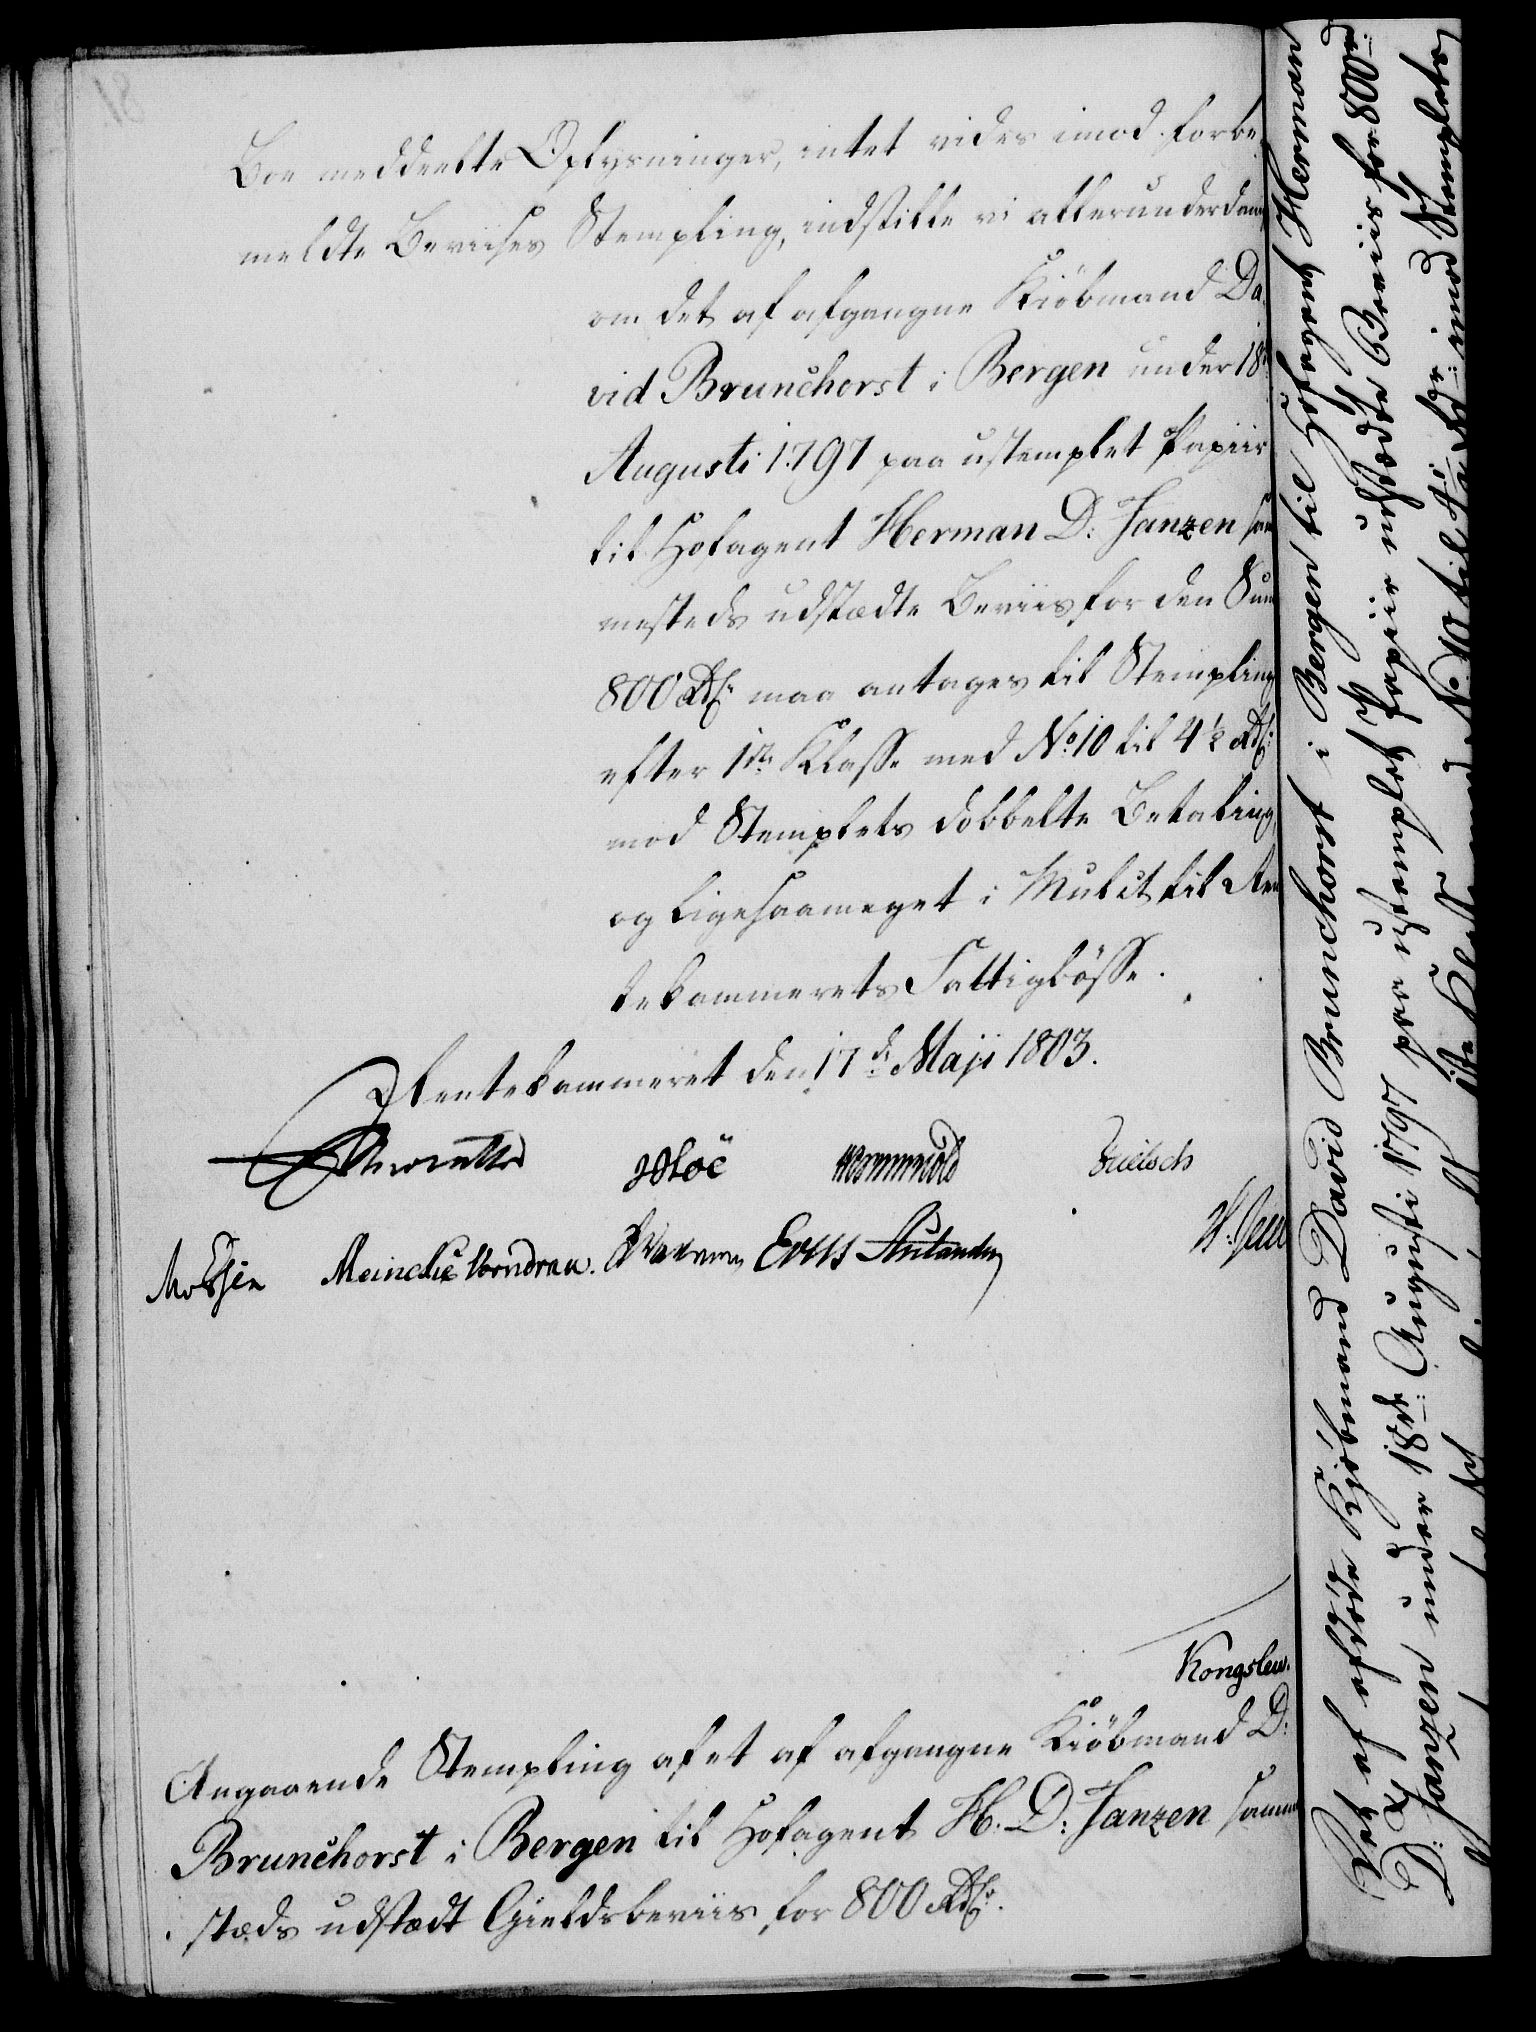 Boe meddeelte Oplysninger, intet vides imod forbe
meldte Beviises Stempling, indstille vi allerunderdan
om det af afgangne Kiöbmand Da,
vid Brunchorst i Bergen under 18de
Augusti 1797 paa ustemplet Papiir
til Hofagent Herman D: Janzen sam
mesteds udstædte Beviis for den Sum
800 Rdr maa antages til Stempling
efter 1ste Klasse med No 10 til 4½ Rdr
mod Stemplets dobbelte Betaling,
og ligesaameget i Mulct til Ren
tekammerets Fattigbösse.
Rentekammeret den 17de Maji 1803.
Hoë Wormskiold
Meincke Vondrau. Evers
Kongslew.
Angaaende Stempling af et af afgangne Kiöbmand D:
Brunchorst i Bergen til Hofagent H. D: Janzen samme
stæds udstædt Gieldsbeviis for 800 Rdr.
Det af afdøde Kjøbmand David Brunchorst i Bergen til Hofagent Herman
D: Janzen under 18de Augusti 1797 paa ustemplet Papiir udstædte Beviis for 800 rd:
1ste Klasse med No 10 til imod Stemplets